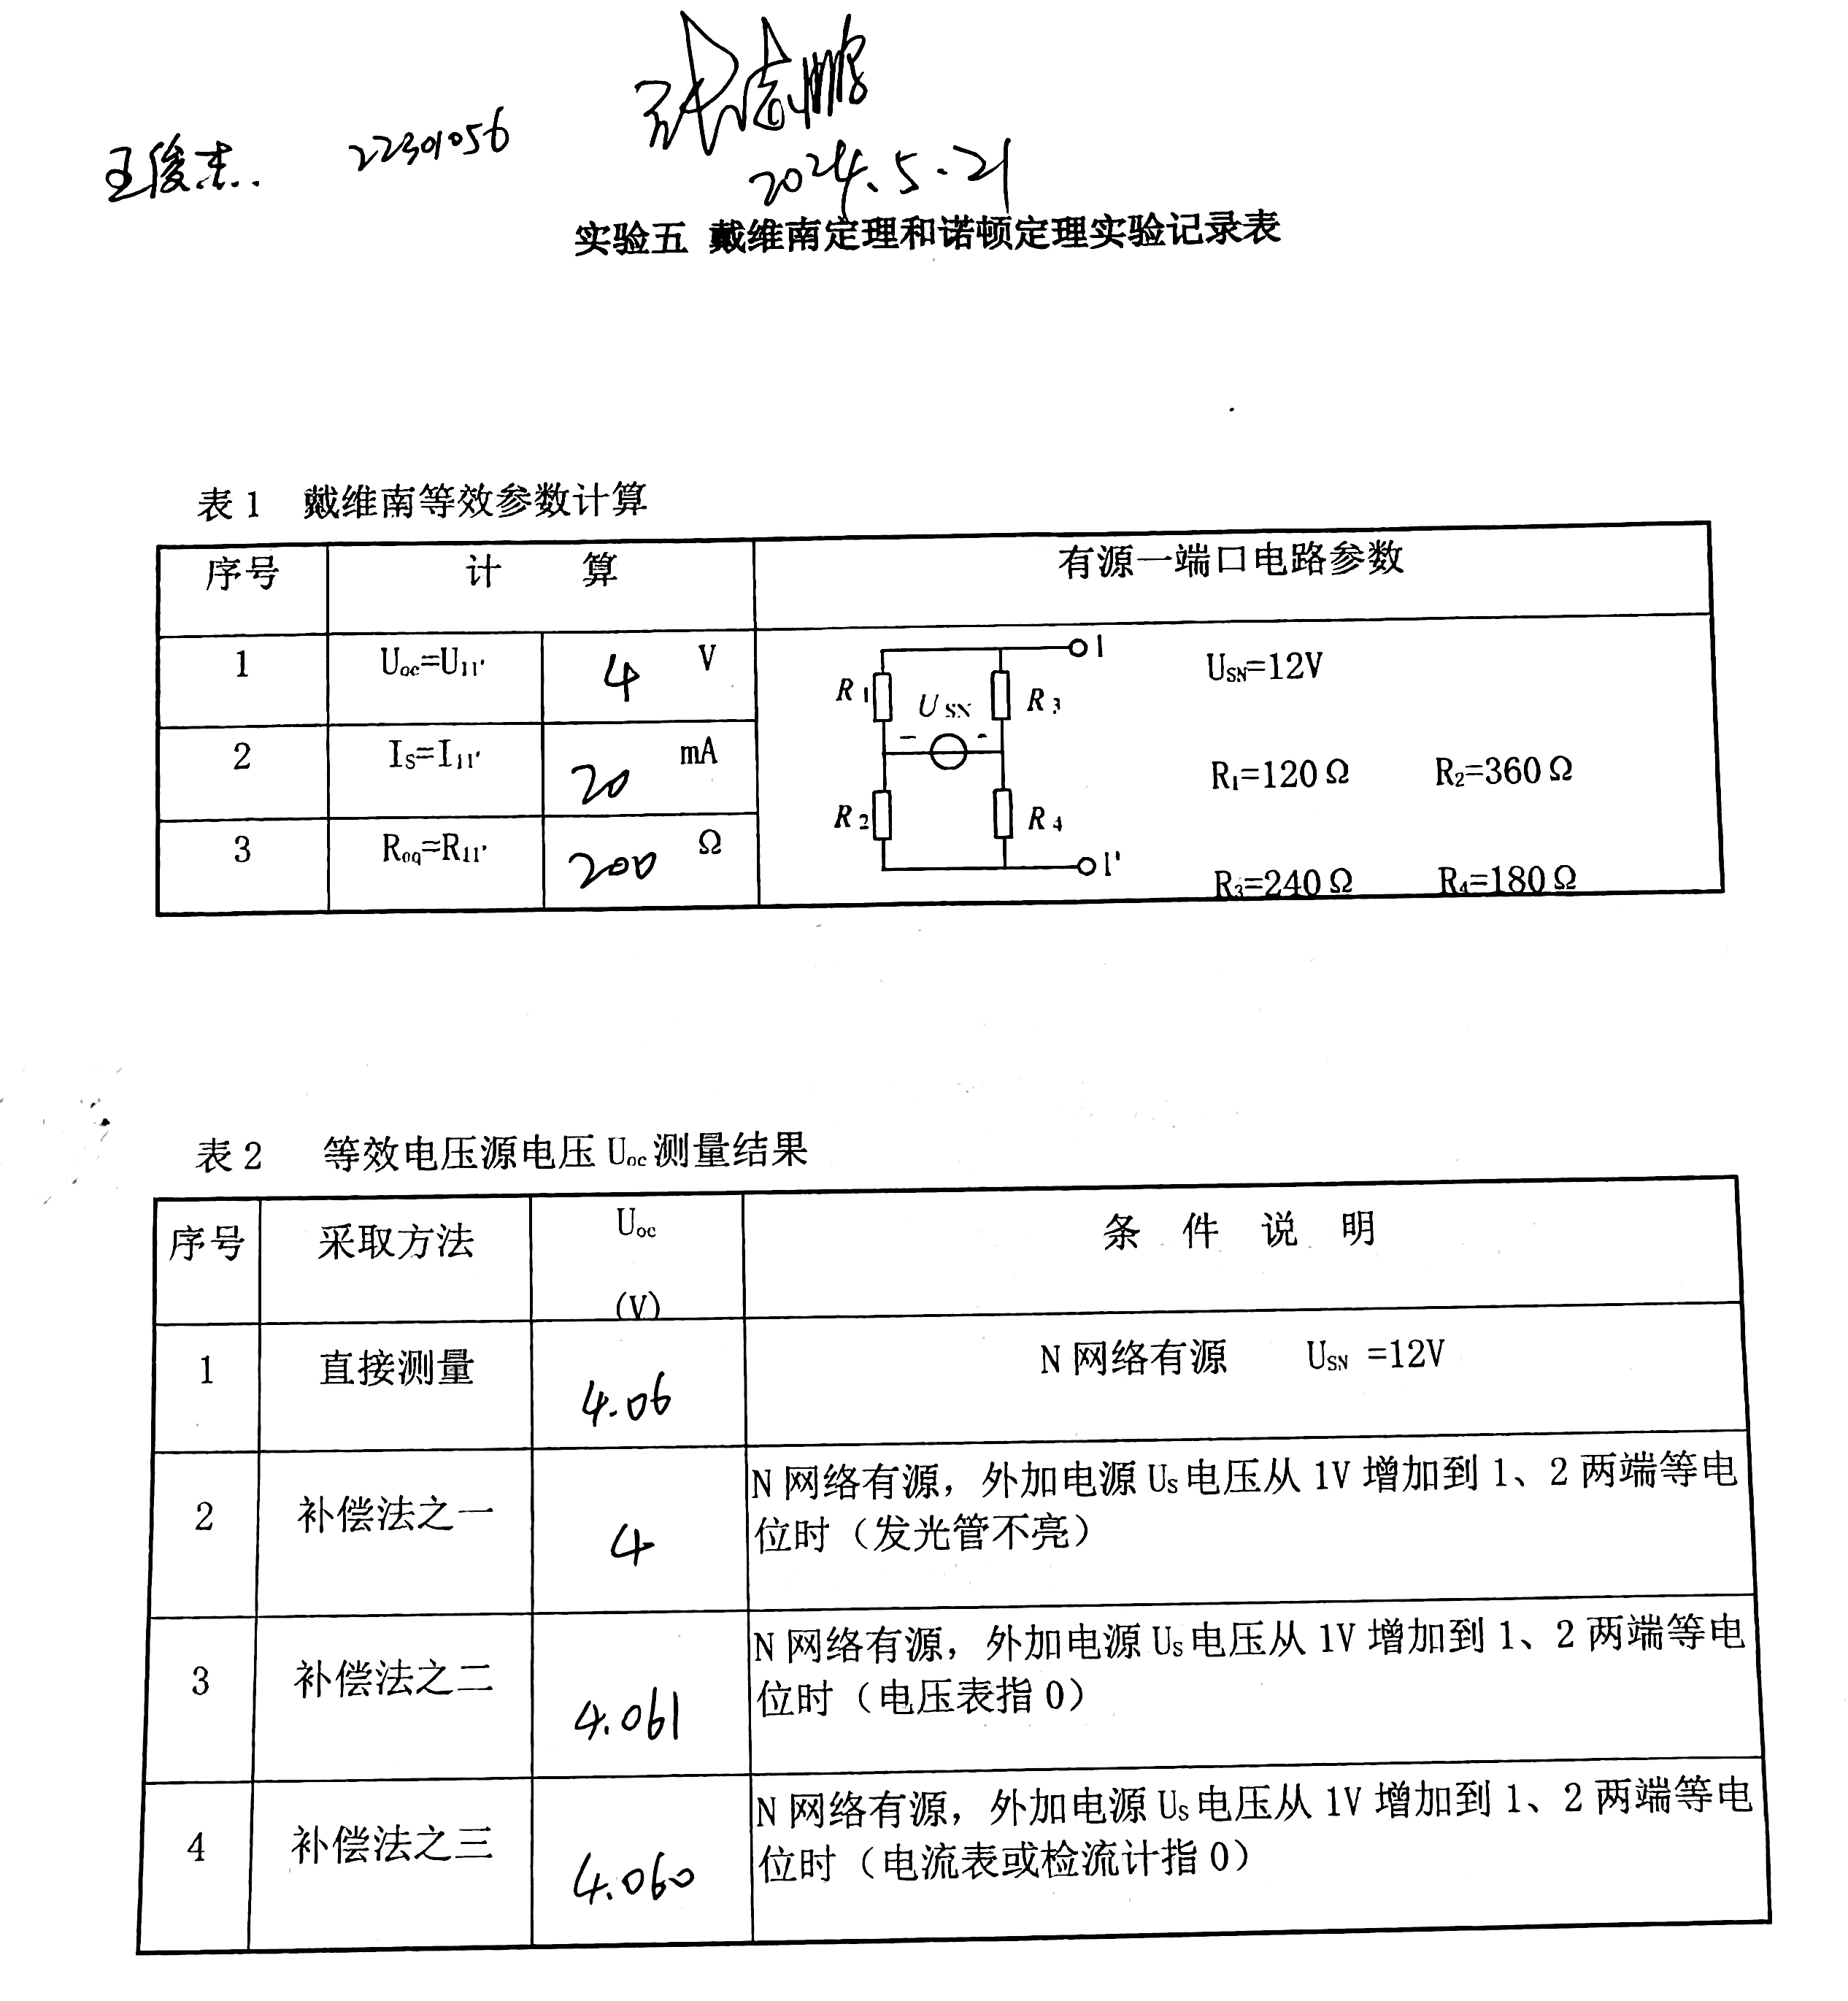 张志鹏
王俊杰. 22301056
2024.5.21
实验五 戴维南定理和诺顿定理实验记录表
表 1 戴维南等效参数计算
序号 计 算 有源一端口电路参数
1 Uoc=U11' 4 V
2 IS=I11' 20 mA
3 Roq=R11' 200 Ω
R1 USN R3 1
- -
R2 R4 1'
USN=12V
R1=120Ω R2=360Ω
R3=240Ω R4=180Ω
表 2 等效电压源电压 Uoc 测量结果
序号 采取方法 Uoc (V) 条 件 说 明
1 直接测量 4.06 N 网络有源 USN =12V
2 补偿法之一 4 N 网络有源，外加电源 US 电压从 1V 增加到 1、2 两端等电
位时（发光管不亮）
3 补偿法之二 4.061 N 网络有源，外加电源 US 电压从 1V 增加到 1、2 两端等电
位时（电压表指 0）
4 补偿法之三 4.060 N 网络有源，外加电源 US 电压从 1V 增加到 1、2 两端等电
位时（电流表或检流计指 0）